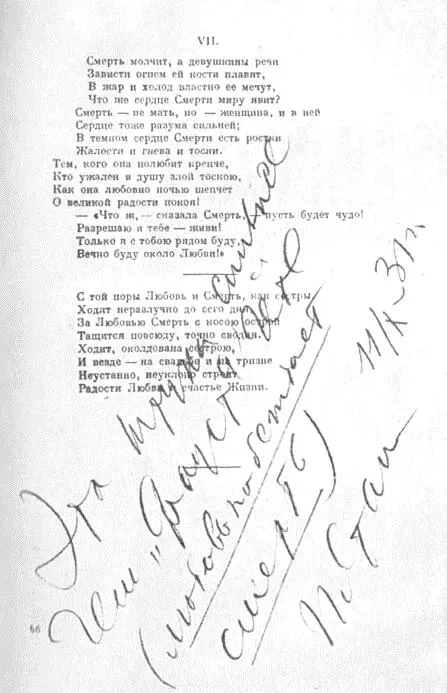 VII.
Смерть молчит, а девушкины речи
Зависти огнем ей кости плавят,
В жар и холод властно ее мечут,
Что же сердце Смерти миру явит?
Смерть — не мать, но — женщина, и в ней
Сердце тоже разума сильней;
В темном сердце Смерти есть ростки
Жалости и гнева и тоски.
Тем, кого она полюбит крепче,
Кто ужален в душу злой тоскою,
Как она любовно ночью шепчет
О великой радости покоя!
— «Что ж, — сказала Смерть, — пусть будет чудо!
Разрешаю я тебе — живи!
Только я с тобою рядом буду,
Вечно буду около Любви!»
С той поры Любовь и Смерть, как сестры,
Ходят неразлучно до сего дня,
За Любовью Смерть с косою острой
Тащится повсюду, точно сводня.
Ходит, околдована сестрою,
И везде — на свадьбе и на тризне
Неустанно, неуклонно строит
Радости Любви и счастье Жизни.
Эта штука сильнее
чем „Фауст" Гете
(любовь побеждает
смерть)
И. Стал
11/X-31г.
66